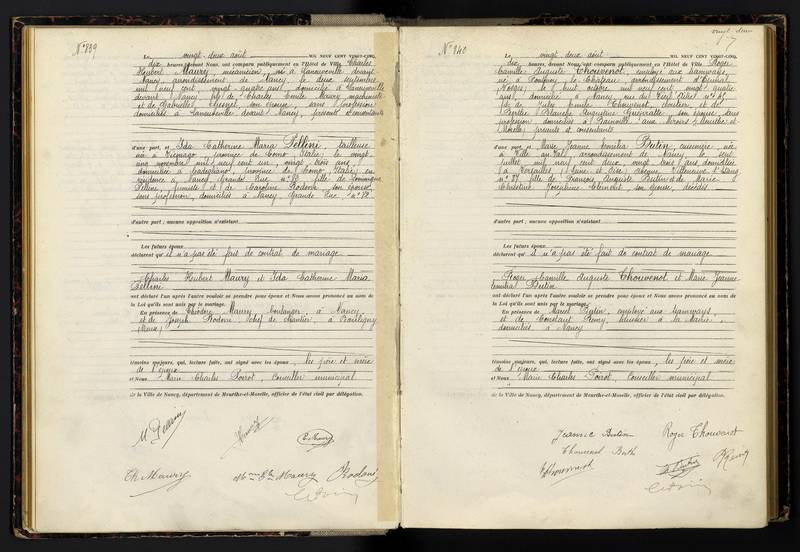 N° 839
Le vingt-deux août MIL NEUF CENT VINGT-CINQ,
dix heures, devant Nous, ont comparu publiquement en l'Hôtel de Ville Charles
Hubert Maury, mécanicien, né à Laneuveville devant
Nancy, arrondissement de Nancy, le deux septembre
mil neuf cent, vingt quatre ans, domicilié à Laneuveville
devant Nancy, fils de Charles Emile Maury machiniste
et de Gabrielle, son épouse, sans profession
domiciliés à Laneuveville devant Nancy, présents et consentants
d'une part, et Ida Catherine Maria Pellini, tailleuse
née à Viconago, province de Como, Italie, le vingt
novembre mil neuf cent un, vingt trois ans,
domiciliée à Cadegliano, province de Como, Italie, en
résidence à Nancy Grande Rue n° 82, fille de Dominique
Pellini, fumiste, et de Caroline Rodoni son épouse
sans profession, domiciliés à Nancy Grande Rue, n° 82
d'autre part; aucune opposition n'existant
Les futurs époux
déclarent qu'il n'a pas été fait de contrat de mariage.
Charles Hubert Maury et Ida Catherine Maria
Pellini
ont déclaré l'un après l'autre vouloir se prendre pour époux et Nous avons prononcé au nom de
la Loi qu'ils sont unis par le mariage.
En présence de Théodore Maury boulanger, à Nancy
et de Joseph Rodoni chef de chantier, à Bouligny
(Meuse)
témoins majeurs, qui, lecture faite, ont signé avec les époux, les père et mère
de l'époux
et Nous Marie Charles Poirot, Conseiller municipal
de la Ville de Nancy, département de Meurthe-et-Moselle, officier de l'état civil par délégation.
Th Maury
Maury
Rodoni
vingt deux
N° 840
Le vingt deux août MIL NEUF CENT VINGT-CINQ,
dix heures, devant Nous, ont comparu publiquement en l'Hôtel de Ville Roger
Camille Auguste Thouvenot, employé aux tramways,
né à Domjevin, le Château, arrondissement d'Epinal
Vosges, le huit octobre mil neuf cent, vingt quatre
ans, domicilié à Nancy, rue n° 15
fils de Jules Emile Thouvenot, et de
Berthe Blanche Augustine, son épouse sans
profession domiciliés à Rainville aux Miroirs Meurthe et
Moselle, présents et consentants
d'une part, et Marie Jeanne Camélia Butin, cuisinière, née
à Ville au Val, arrondissement de Nancy, le sept
juillet mil neuf cent deux, vingt trois ans domiciliée
à Versailles, (Seine et Oise) Villeneuve l'Etang
n° 37, fille de François Auguste Butin et de Marie
Christine Joséphine Clément son épouse, décédés.
d'autre part; aucune opposition n'existant
Les futurs époux
déclarent qu'il n'a pas été fait de contrat de mariage
Roger Camille Auguste Thouvenot et Marie Jeanne
Camélia Butin
ont déclaré l'un après l'autre vouloir se prendre pour époux et Nous avons prononcé au nom de
la Loi qu'ils sont unis par le mariage.
En présence de Marcel Butin, employé aux tramways,
et de Constant Remy, à la Mairie,
domiciliés à Nancy
témoins majeurs, qui, lecture faite, ont signé avec les époux, les père et mère
de l'époux
et Nous Marie Charles Poirot, Conseiller municipal
de la Ville de Nancy, département de Meurthe-et-Moselle, officier de l'état civil par délégation.
Jeanne Butin
Roger Thouvenot
Thouvenot Berth
Thouvenot
Remy